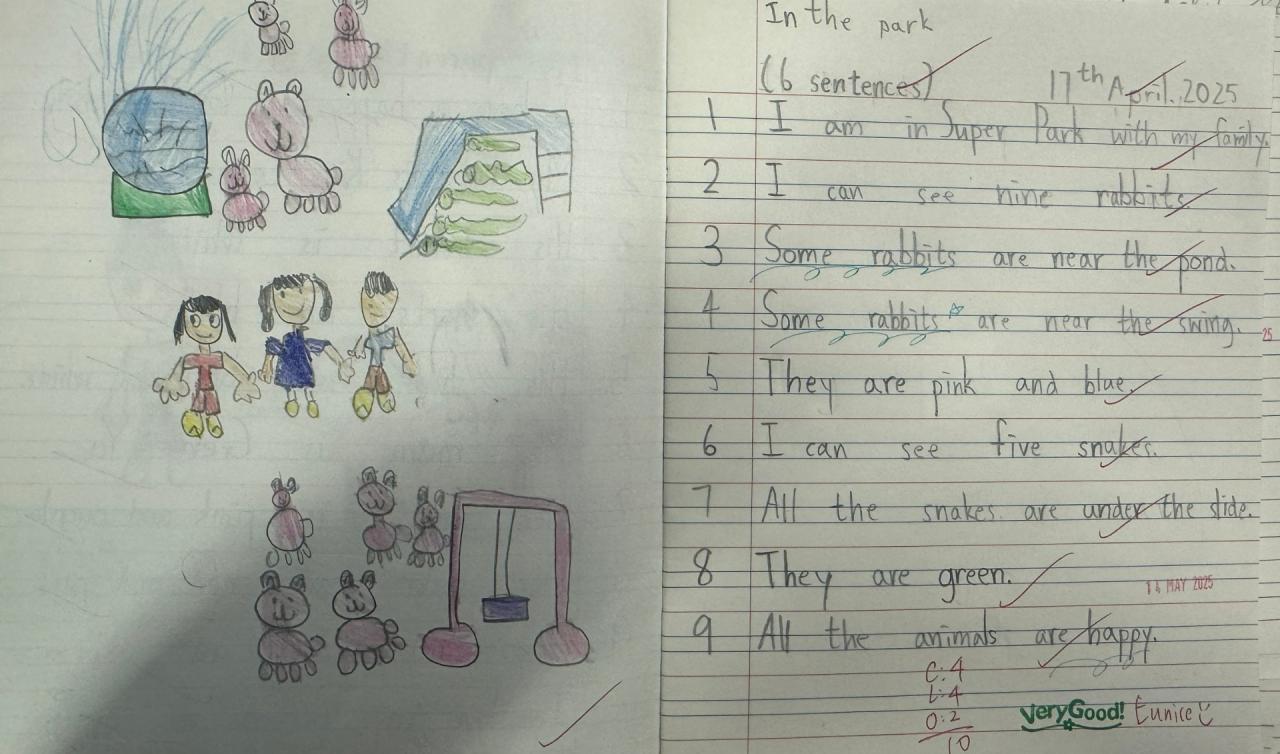 In the park
(6 sentences) 17th April. 2025
1 I am in Super Park with my family.
2 I can see nine rabbits
3 Some rabbits are near the pond.
4 Some rabbits are near the swing.
25
5 They are pink and blue.
6 I can see five snakes.
7 All the snakes are under the slide.
8 They are green.
14 MAY 2025
9 All the animals are happy.
C: 4
L: 4
O: 2
10
Very Good! Eunice